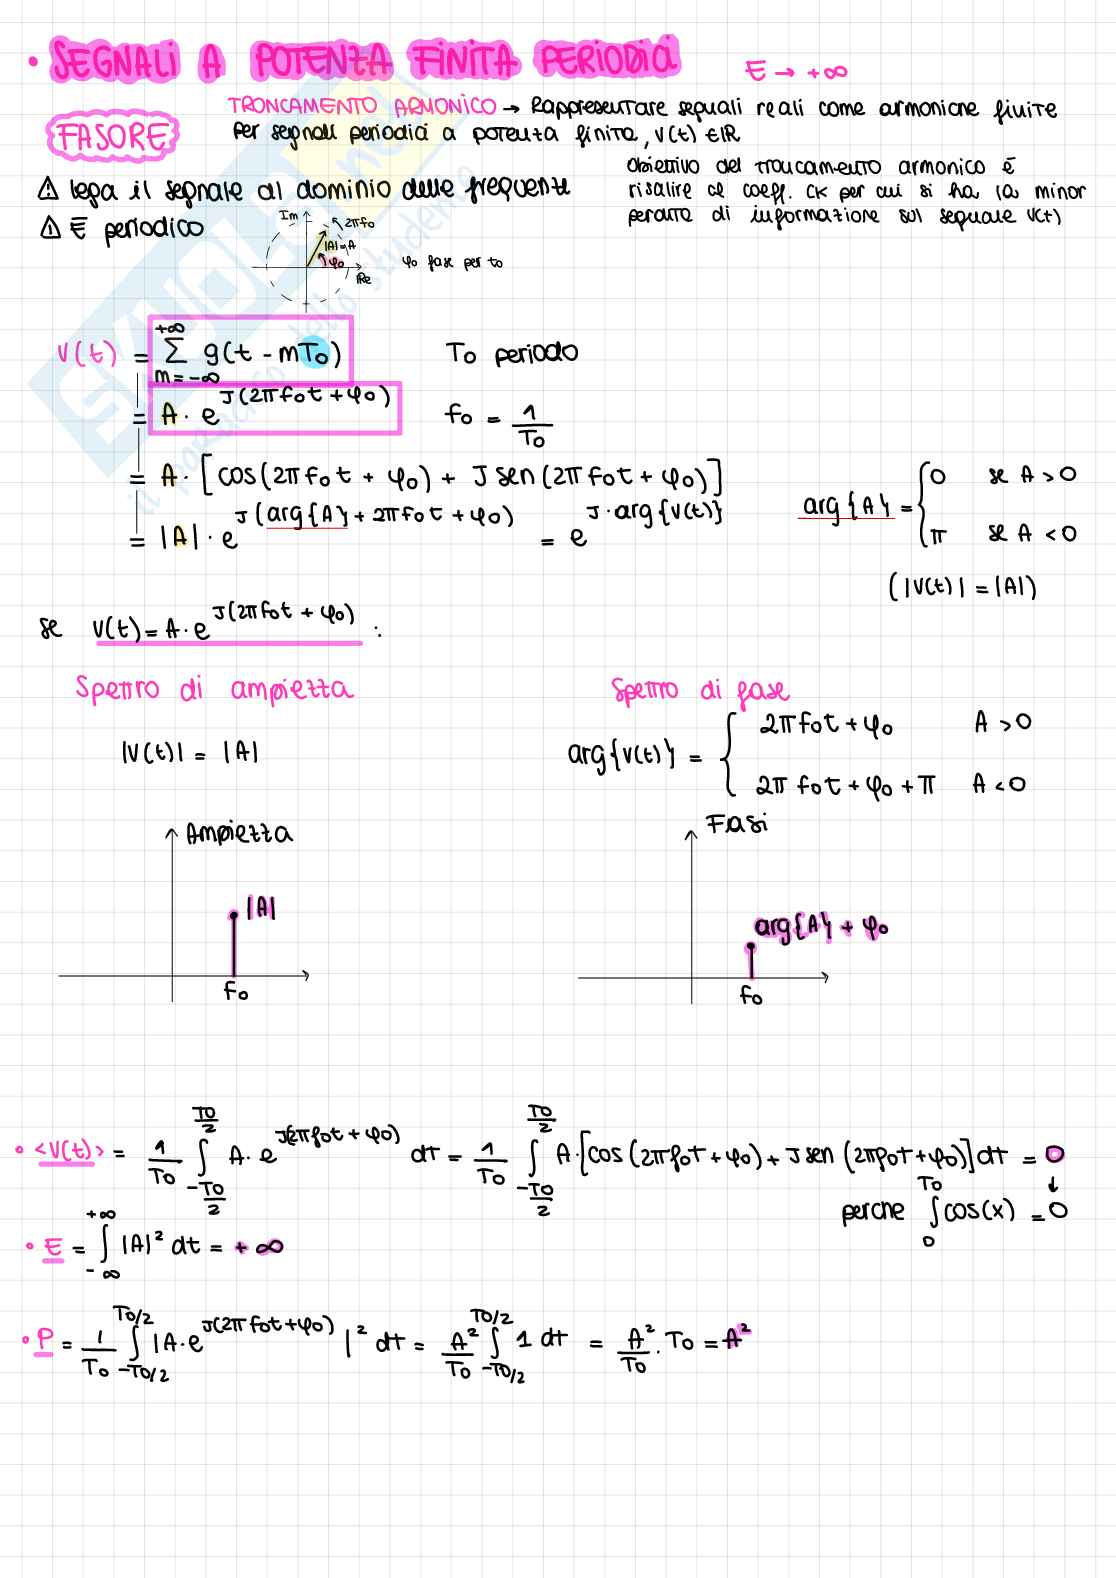 • SEGNALI A POTENZA FINITA PERIODICI
E → +∞
FASORE
TRONCAMENTO ARMONICO → Rappresentare segnali reali come armoniche finite
per segnali periodici a potenza finita, V(t) ∈ ℝ
⚠ lega il segnale al dominio delle frequenze
⚠ È periodico
Obiettivo del troncamento armonico è
risalire ai coeff. Ck per cui si ha la minor
perdita di informazione sul segnale V(t)
Im
2πf₀
|A|=A
φ₀
Re
φ₀ fase per t₀
V(t) = +∞ Σ m=-∞ g(t - mT₀)
T₀ periodo
= A · e^J(2πf₀t + φ₀)
f₀ = 1/T₀
= A · [cos(2πf₀t + φ₀) + J sen(2πf₀t + φ₀)]
= |A| · e^J(arg{A} + 2πf₀t + φ₀) = e^J·arg{V(t)}
arg{A} = { 0 se A > 0
π se A < 0
(|V(t)| = |A|)
se V(t) = A · e^J(2πf₀t + φ₀) :
Spettro di ampiezza
|V(t)| = |A|
Spettro di fase
arg{V(t)} = { 2πf₀t + φ₀ A > 0
2πf₀t + φ₀ + π A < 0
Ampiezza
|A|
f₀
Fasi
arg{A} + φ₀
f₀
• <V(t)> = 1/T₀ ∫_{-T₀/2}^{T₀/2} A · e^J(2πf₀t + φ₀) dt = 1/T₀ ∫_{-T₀/2}^{T₀/2} A·[cos(2πf₀t + φ₀) + J sen(2πf₀t + φ₀)] dt = 0
↓
perche ∫_0^{T₀} cos(x) = 0
• E = ∫_{-∞}^{+∞} |A|² dt = +∞
• P = 1/T₀ ∫_{-T₀/2}^{T₀/2} |A·e^J(2πf₀t + φ₀)|² dt = A²/T₀ ∫_{-T₀/2}^{T₀/2} 1 dt = A²/T₀ · T₀ = A²